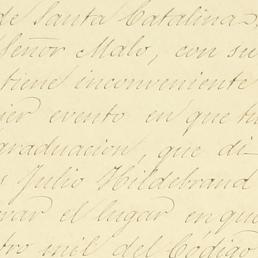 de Santa Catalina,
Señor Malo, con su
tiene inconveniente
ier evento en que tu
graduacion, que di-
s Julio Hildebrand
rar el lugar en que
tro mil del Código